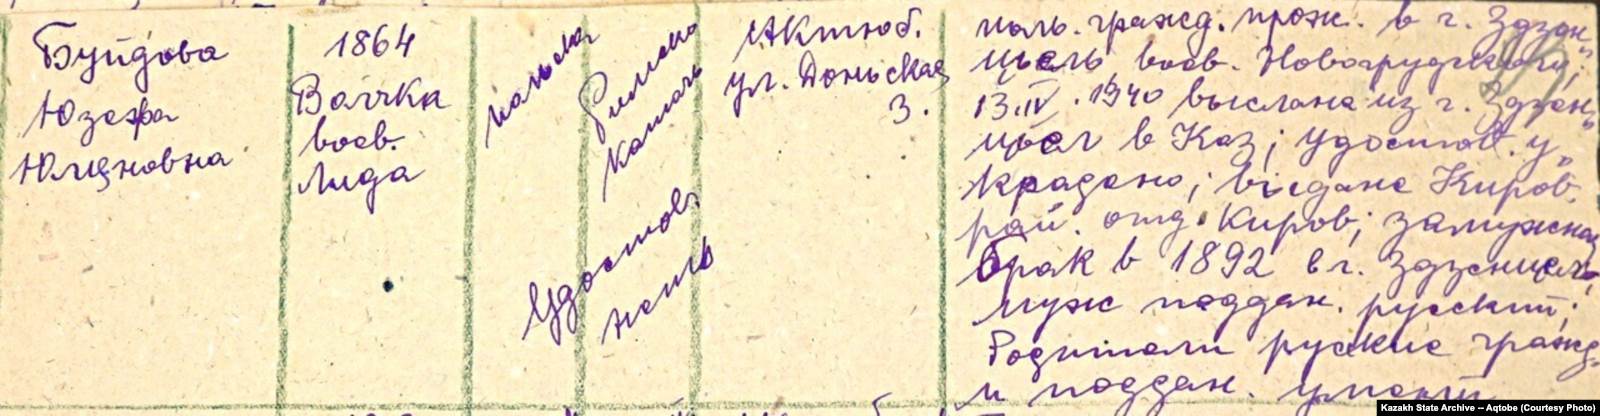 Буйдова
Юзефа
Юлиановна
1864
Воячка
воев.
Лида
полька
Римско
Катол
Удостов.
нет
Актюб.
ул. Доньская
3.
поль. гражд. прож. в г. Здзен
цьель воев. Новогрудского;
13.IV.1940 выслана из г. Здзен
цьел в Каз; удостов. у
крадено; выдане Киров.
рай. отд. Киров; замужная
брак в 1892 в г. Здзенцель
муж поддан. русский;
Родители руские гражд.
и поддан.
Kazakh State Archive -- Aqtobe (Courtesy Photo)